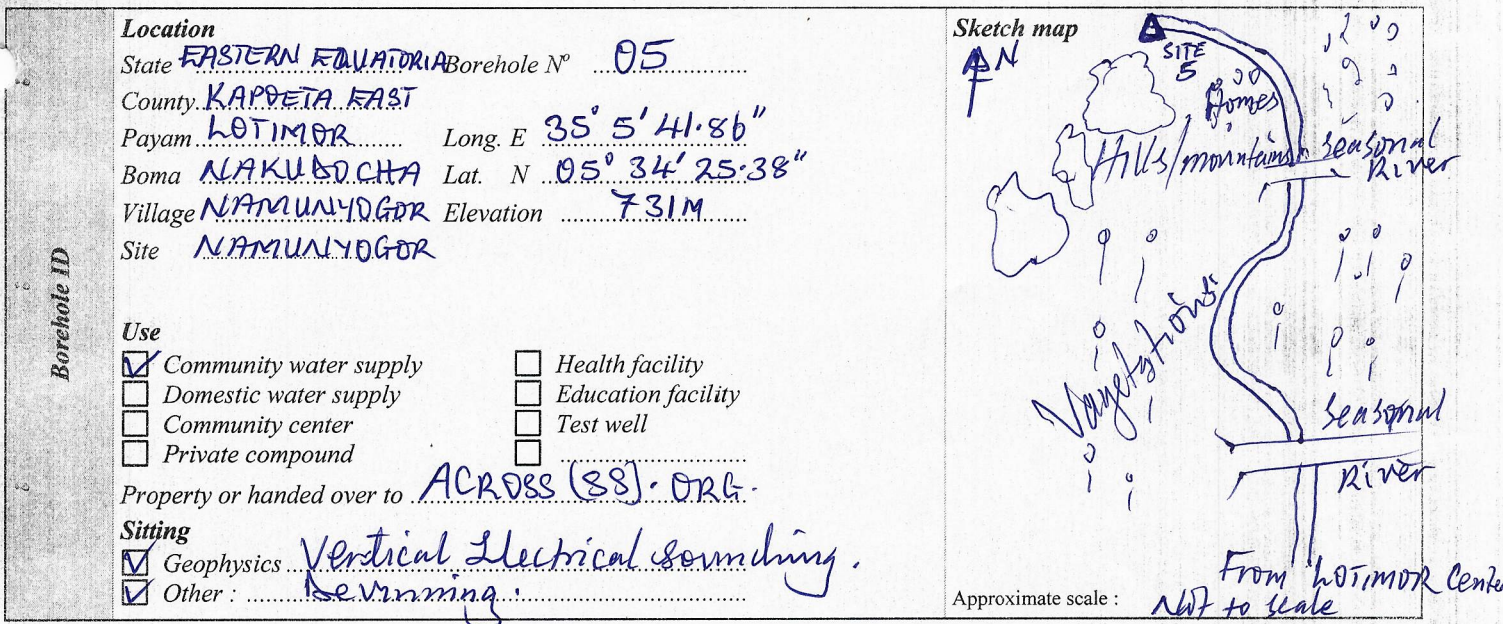 Borehole ID
Location
State EASTERN EQUATORIA Borehole Nº 05
County KAPOETA EAST
Payam LOTIMOR Long. E 35° 5' 41.86"
Boma NAKUDOCHA Lat. N 05° 34' 25.38"
Village NAMUNYOGOR Elevation 731M
Site NAMUNYOGOR
Use
Community water supply Health facility
Domestic water supply Education facility
Community center Test well
Private compound
Property or handed over to ACROSS (SS). ORG.
Sitting
Geophysics Vertical Electrical sounding.
Other :
Sketch map
N
SITE
5
Homes
Hills/mountains
Seasonal
River
Vagetations
Seasonal
River
From LOTIMOR Center
Approximate scale : Not to scale